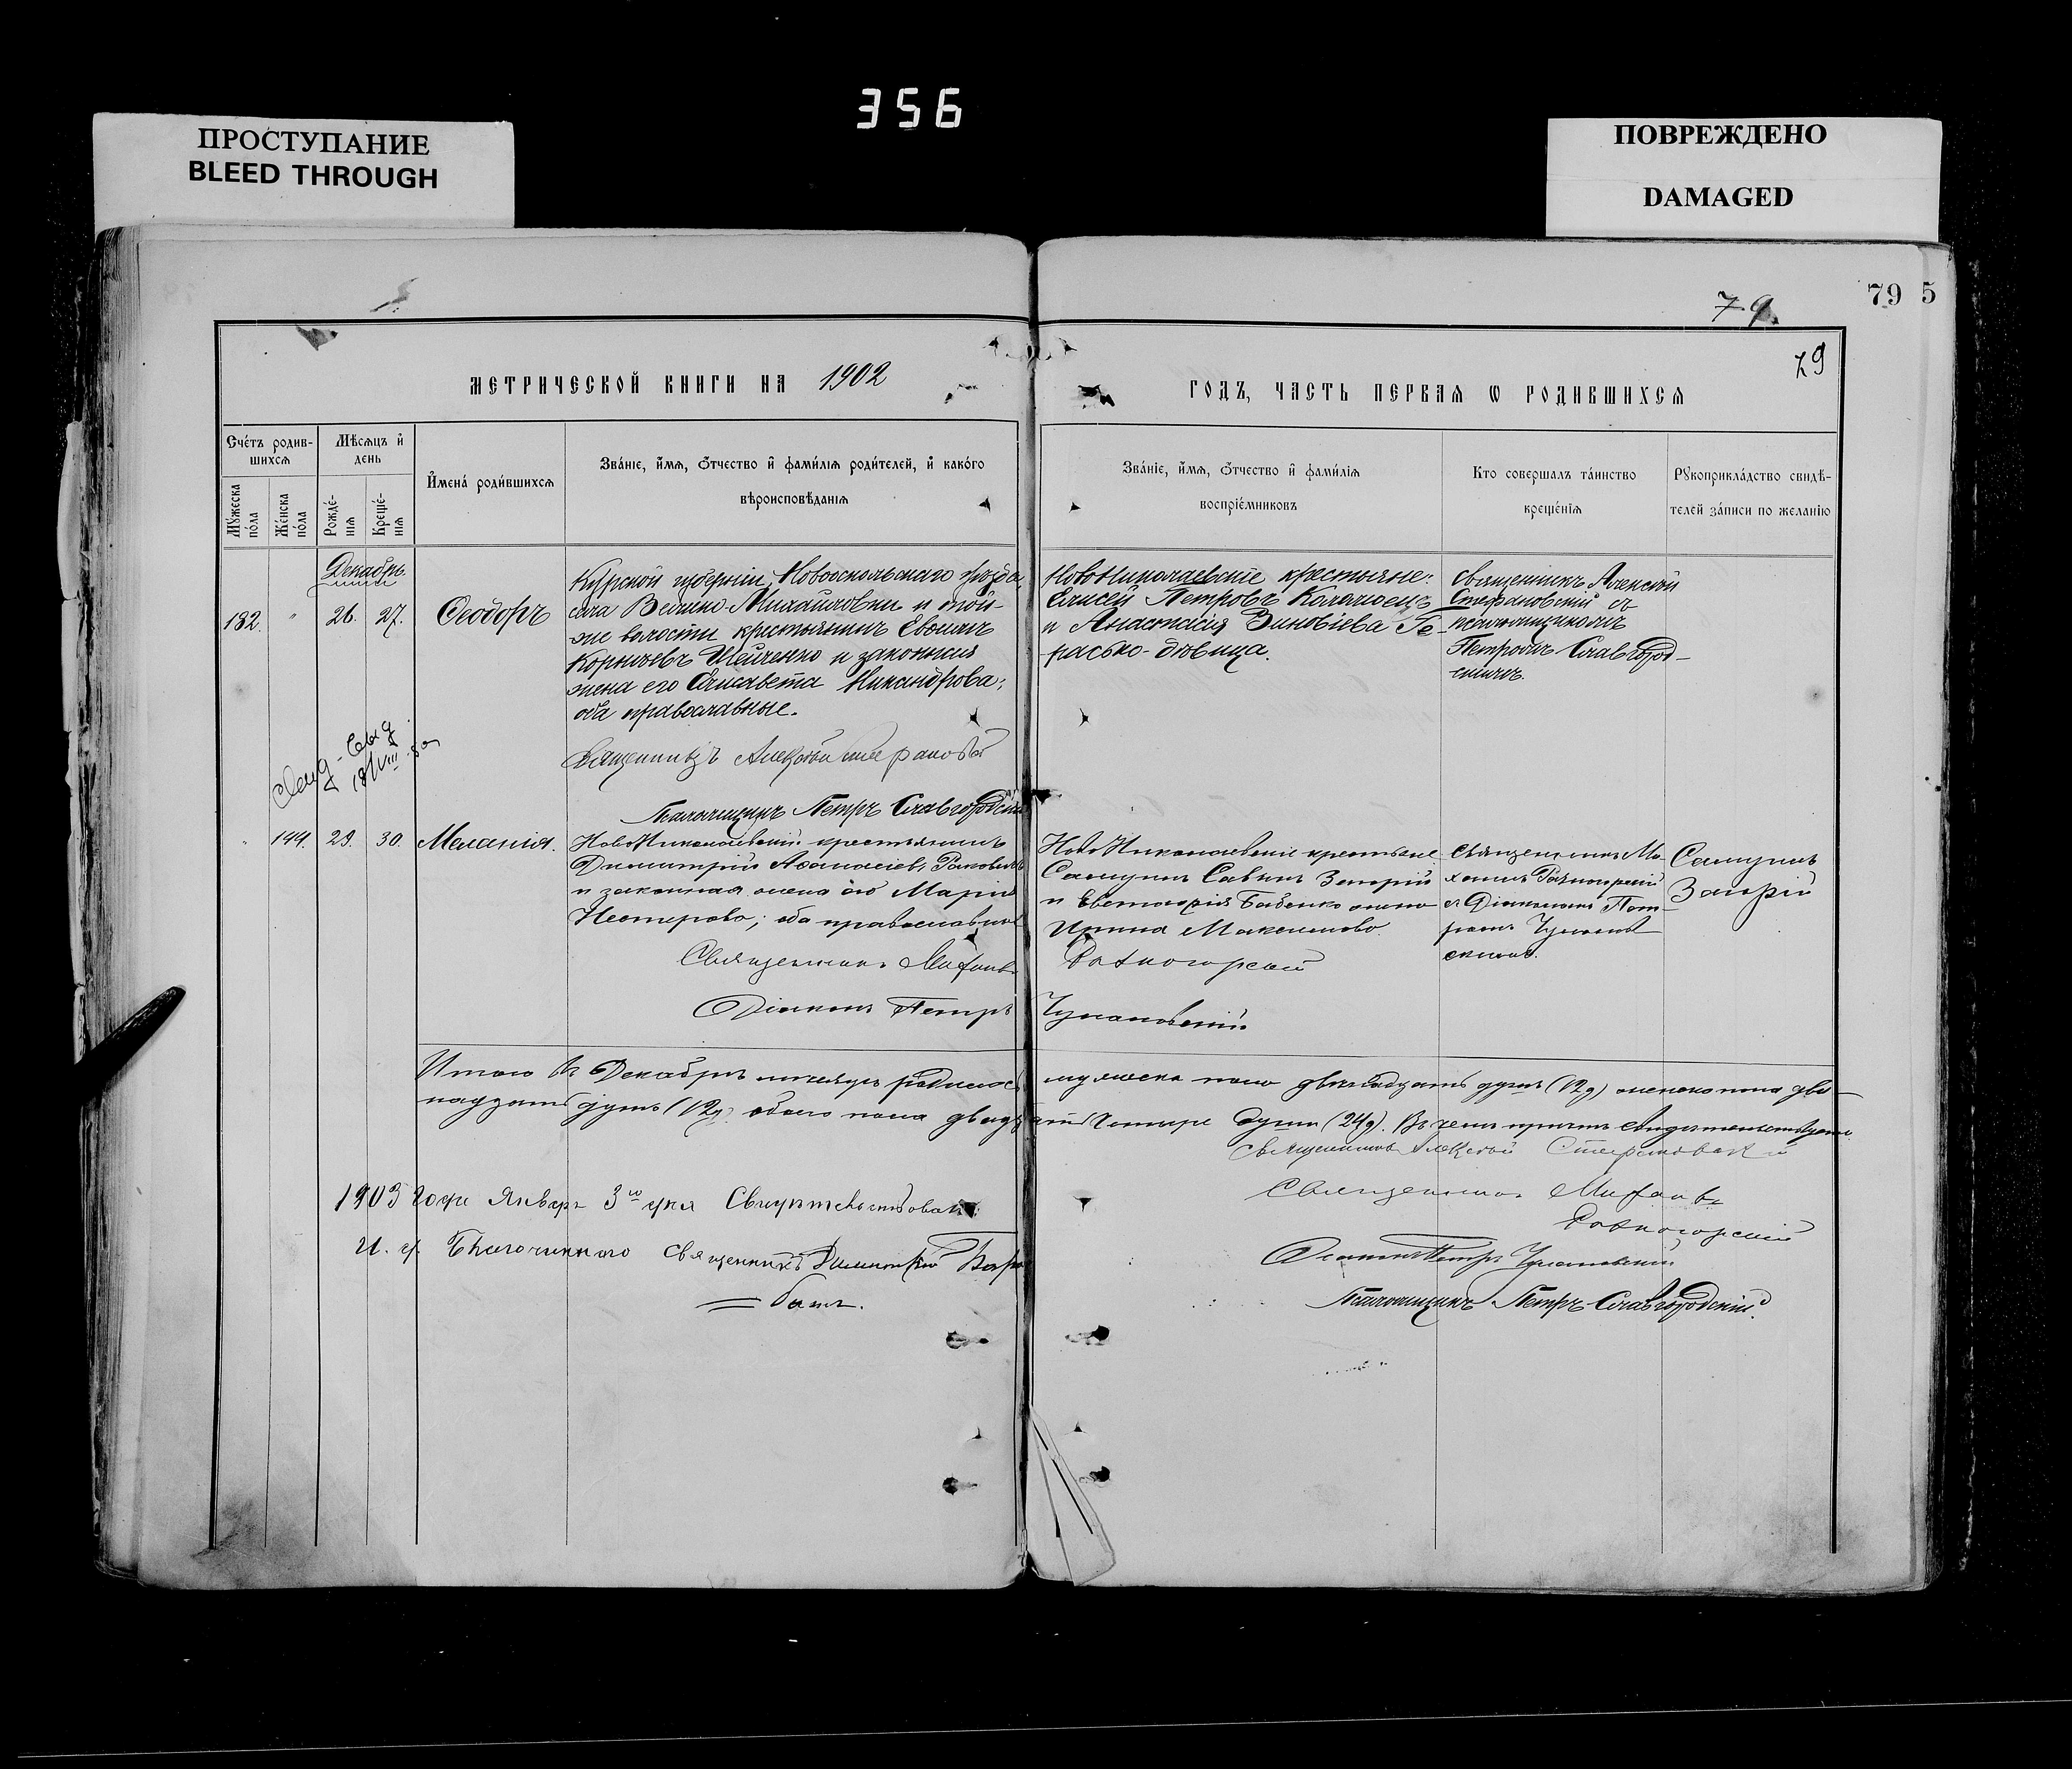 356
ПРОСТУПАНИЕ
BLEED THROUGH
ПОВРЕЖДЕНО
DAMAGED
79 5
79
79
МЕТРИЧЕСКОЙ КНИГИ НА 1902
ГОДЪ, ЧАСТЬ ПЕРВАЯ Ѡ РОДИВШИХСЯ
Счетъ родив-
шихся
Мѣсяцъ и
день
Мужеска
пола
Женска
пола
Рожде-
нія
Креще-
нія
Имена родившихся
Званіе, имя, отчество и фамилія родителей, и какого
вѣроисповѣданія
Званіе, имя, отчество и фамилія
воспріемниковъ
Кто совершалъ таинство
крещенія
Рукоприкладство свидѣ-
телей записи по желанію
Декабрь.
182. " 26. 27. Ѳеодоръ
Курской губерніи, Новооскольскаго уѣзда,
села Велико-Михайловки и той-
же волости крестьянинъ
Корнѣевъ Шейченко и законная
жена его Елисавета Никандрова;
оба православные.
НовоНиколаевскіе крестьяне:
Елисей Петровъ Коломоецъ
и Анастасія Зиновіева Ге-
расько-дѣвица.
Священникъ Алексѣй
Стефановскій съ
псаломщикомъ
Петромъ Славгород-
скимъ.
Священникъ Алексѣй Стефановскій
Псаломщикъ Петръ Славгородскій
" 144. 29. 30. Меланія.
НовоНиколаевскій крестьянинъ
Димитрій Аѳанасіевъ
и законная жена его Марія
Нестерова; оба православные
НовоНиколаевскіе крестьяне
Самуилъ Саввинъ Загорій
и Бабенко жена
Ирина Максимова.
Священникъ Ми-
хаилъ Разногорскій
съ Діакономъ Пет-
ромъ Чуманов-
скимъ.
Самуилъ
Загорій
Священникъ Михаилъ Разногорскій
Діаконъ Петръ Чумановскій
Итого въ Декабрѣ мѣсяцѣ родилось мужеска пола двѣнадцать душъ (12д) женска пола двѣ-
надцать душъ (12д) обоего пола двадцать четыре души (24д). Въ чемъ причтъ свидѣтельствуетъ.
Священникъ Алексѣй Стефановскій
Священникъ Михаилъ
Разногорскій
Діаконъ Петръ Чумановскій
Псаломщикъ Петръ Славгородскій.
1903 года Январь 3го дня Свидѣтельствовалъ:
И. д. Благочиннаго Священникъ Димитрій